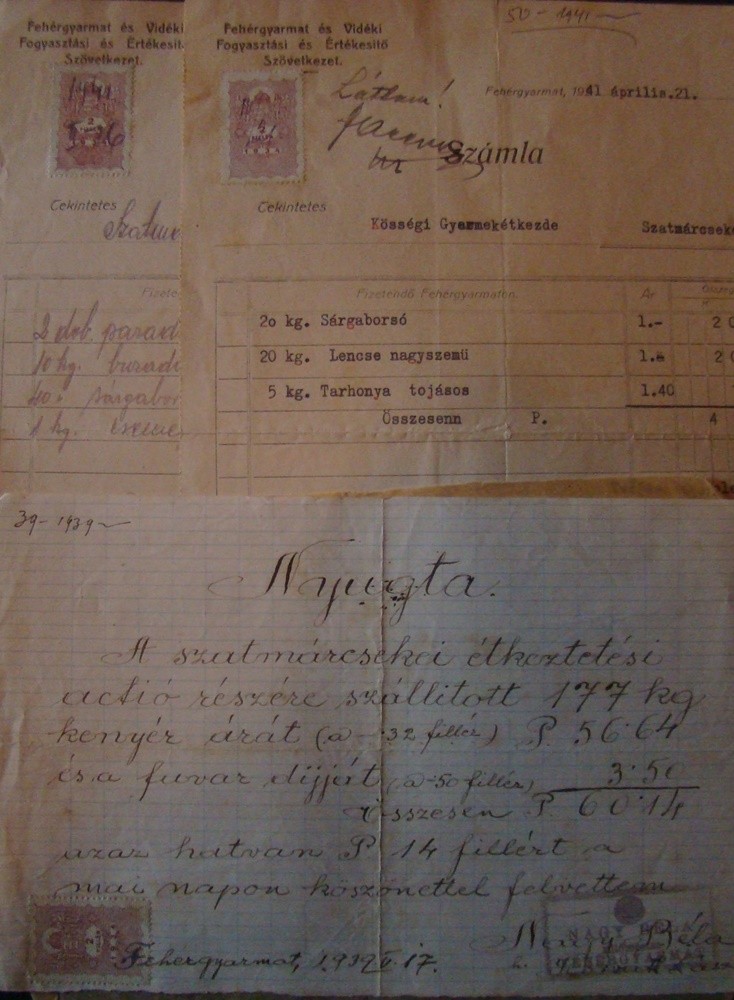 Fehérgyarmat és Vidéki
Fogyasztási és Értékesitő
Szövetkezet.
1941
2
Cekintetes
Fizete
2 dob. parad
10 kg.
40 " sárgabor
1 kg.
50 - 1941
Fehérgyarmat és Vidéki
Fogyasztási és Értékesitő
Szövetkezet.
2
Láttam!
Fehérgyarmat, 1941 április.21.
Számla
Cekintetes
Kösségi Gyermekétkezde Szatmárcseke
Fizetendő Fehérgyarmaton. Ár
20 kg. Sárgaborsó 1.- 20
20 kg. Lencse nagyszemü 1.- 20
5 kg. Tarhonya tojásos 1.40
Összesenn P. 4
39 - 1939
Nyugta.
A szatmárcsekei étkeztetési
actió részére szállitott 177 kg
kenyér árát (a - .32 fillér) P. 56.64
és a fuvar dijjért (a -50 fillér) 3.50
összesen P. 60.14
azaz hatvan P. 14 fillért a
mai napon köszönettel felvettem
2
Fehérgyarmat, 1939 II. 17.
Nagy Béla
NAGY BÉLA
FEHÉRGYARMAT